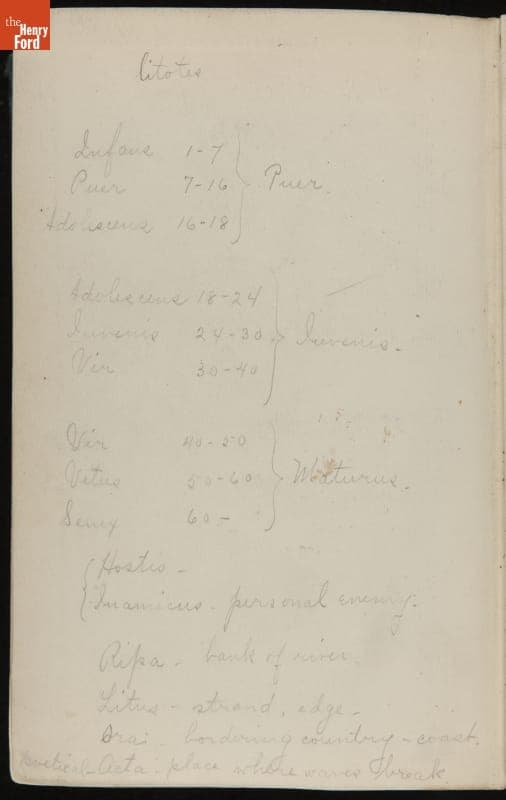 the
Henry
Ford
Litotes
Infans 1-7
Puer 7-16 Puer.
Adolescens 16-18
Adolescens 18-24
Iuvenis 24-30 Iuvenis.
Vir 30-40
Vir 40-50
Vetus 50-60 Maturus.
Senex 60-
Hostis -
Inamicus - personal enemy.
Ripa - bank of river.
Litus - strand, edge -
Ora: bordering country - coast.
Acta: place where waves break